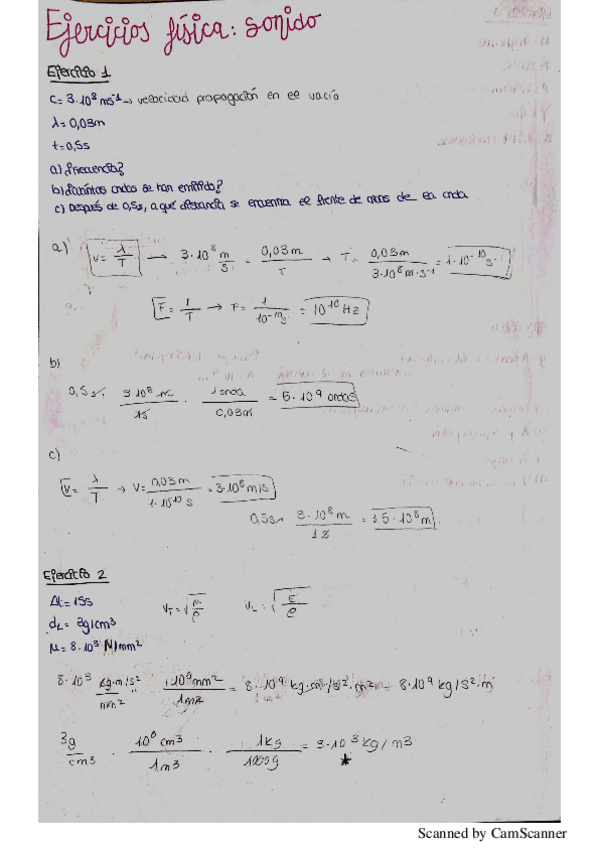 Ejercicios física: sonido
Ejercicio 1
c = 3·10⁸ ms⁻¹ → velocidad propagación en el vacío
λ = 0,03m
t = 0,5s
a) ¿Frecuencia?
b) ¿Cuántas ondas se han emitido?
c) Después de 0,5s, a qué distancia se encuentra el frente de ondas de la onda
a) v = λ/T → 3·10⁸ m/s = 0,03m/T → T = 0,03m/3·10⁸ m·s⁻¹ = 1·10⁻¹⁰ s
F = 1/T → F = 1/10⁻¹⁰s = 10¹⁰ Hz
b)
0,5s · 3·10⁸ m/1s · 1 onda/0,03m = 5·10⁹ ondas
c)
v = λ/T → v = 0,03m/1·10⁻¹⁰ s = 3·10⁸ m/s
0,5s · 3·10⁸ m/1s = 1,5·10⁸ m
Ejercicio 2
Δt = 15s
v_T = √μ/ρ v_L = √E/ρ
d_L = 3g/cm³
μ = 8·10³ N/mm²
8·10³ kg·m/s²/mm² · 10⁶mm²/1m² = 8·10⁹ kg·m/s²·m² = 8·10⁹ kg/s²·m
3g/cm³ · 10⁶ cm³/1m³ · 1kg/1000g = 3·10³ kg/m³
*
Scanned by CamScanner